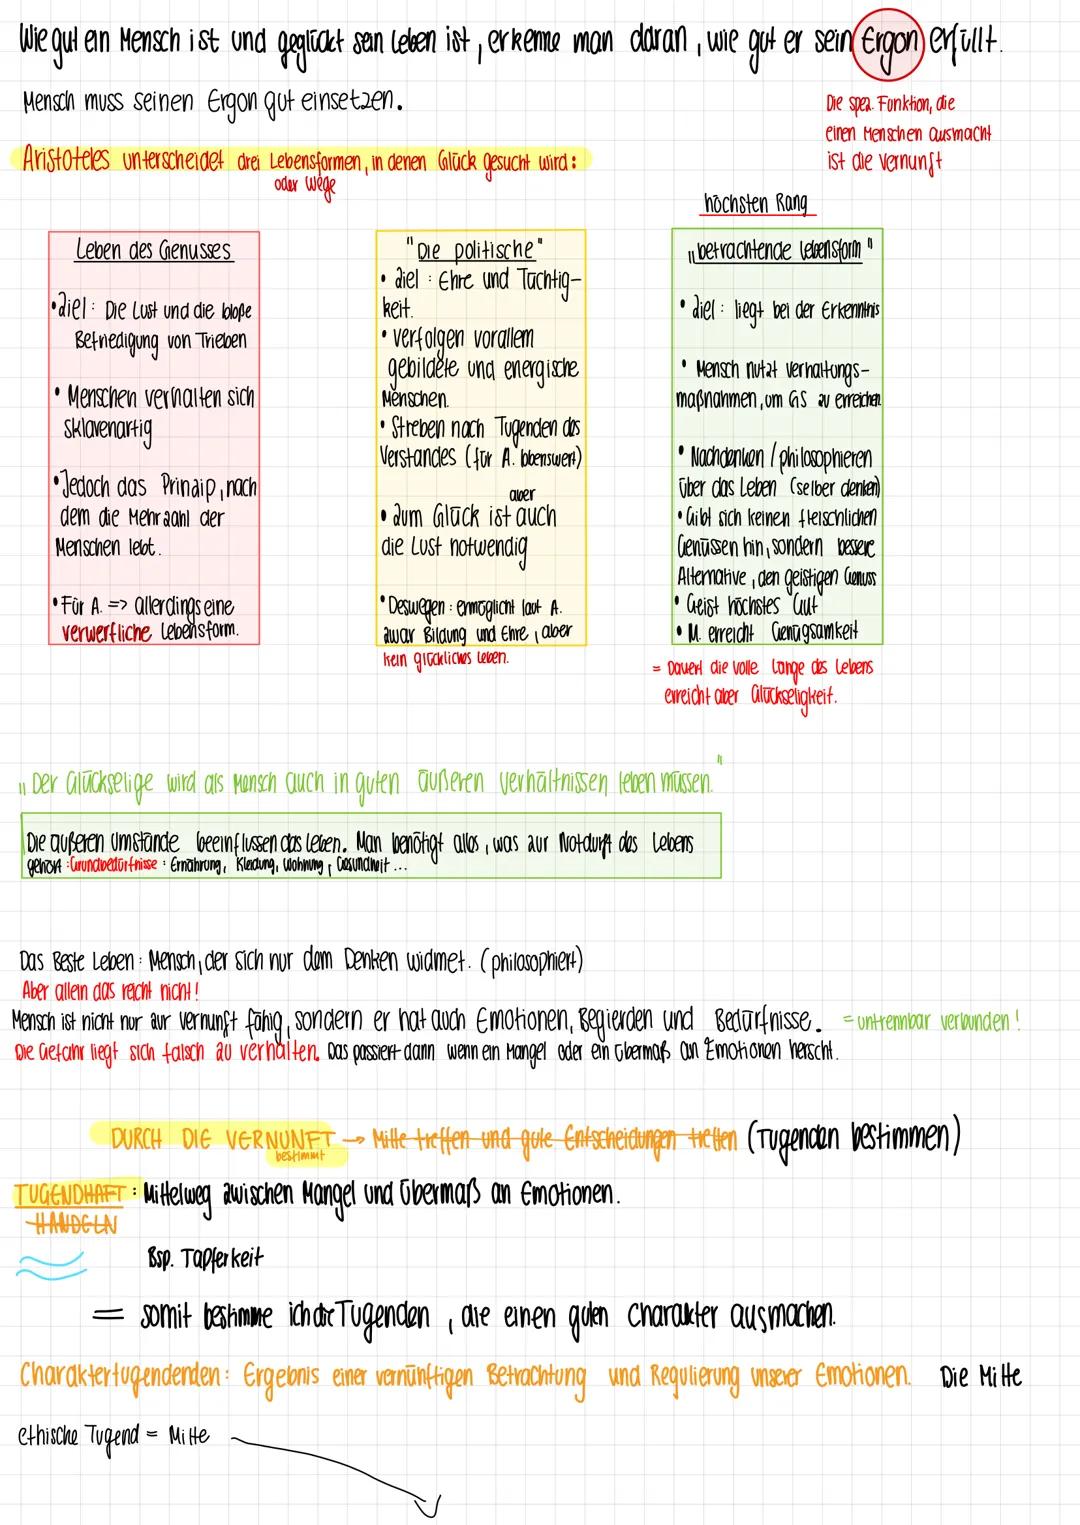 Wie gut ein Mensch ist und geglückt sein Leben ist, erkenne man daran, wie gut er sein Ergon erfüllt.
Mensch muss seinen Ergon gut einsetzen.
Die spez. Funktion, die
einen Menschen ausmacht
ist die Vernunft
Aristoteles unterscheidet drei Lebensformen, in denen Glück gesucht wird:
oder Wege
höchsten Rang
Leben des Genusses
• Ziel: Die Lust und die bloße
Befriedigung von Trieben
• Menschen verhalten sich
sklavenartig
• Jedoch das Prinzip, nach
dem die Mehrzahl der
Menschen lebt.
• Für A. => allerdings eine
verwerfliche Lebensform.
"Die politische"
• Ziel: Ehre und Tüchtig-
keit.
• verfolgen vorallem
gebildete und energische
Menschen.
• Streben nach Tugenden des
Verstandes (für A. lobenswert)
aber
• Zum Glück ist auch
die Lust notwendig
• Deswegen: ermöglicht laut A.
zwar Bildung und Ehre, aber
kein glückliches Leben.
„betrachtende Lebensform"
• Ziel: liegt bei der Erkenntnis
• Mensch nutzt Verhaltungs-
maßnahmen, um GS zu erreichen
• Nachdenken / philosophieren
über das Leben (selber denken)
• Gibt sich keinen fleischlichen
Genüssen hin, sondern bessere
Alternative, den geistigen Genuss
• Geist höchstes Gut
• M. erreicht Genügsamkeit
= Dauert die volle Länge des Lebens
erreicht aber Glückseligkeit.
„Der Glückselige wird als Mensch auch in guten äußeren Verhältnissen leben müssen."
Die äußeren Umstände beeinflussen das Leben. Man benötigt alles, was zur Notdurft des Lebens
gehört: Grundbedürfnisse: Ernährung, Kleidung, Wohnung, Gesundheit ...
Das Beste Leben: Mensch, der sich nur dem Denken widmet. (philosophiert)
Aber allein das reicht nicht!
Mensch ist nicht nur zur Vernunft fähig, sondern er hat auch Emotionen, Begierden und Bedürfnisse. = untrennbar verbunden!
Die Gefahr liegt sich falsch zu verhalten. Das passiert dann wenn ein Mangel oder ein Übermaß an Emotionen herscht.
DURCH DIE VERNUNFT → Mitte treffen und gute Entscheidungen treffen (Tugenden bestimmen)
bestimmt
TUGENDHAFT: Mittelweg zwischen Mangel und Übermaß an Emotionen.
HANDELN
Bsp. Tapferkeit
= somit bestimme ich die Tugenden, die einen guten Charakter ausmachen.
Charaktertugendenden: Ergebnis einer vernünftigen Betrachtung und Regulierung unserer Emotionen. Die Mitte
ethische Tugend = Mitte